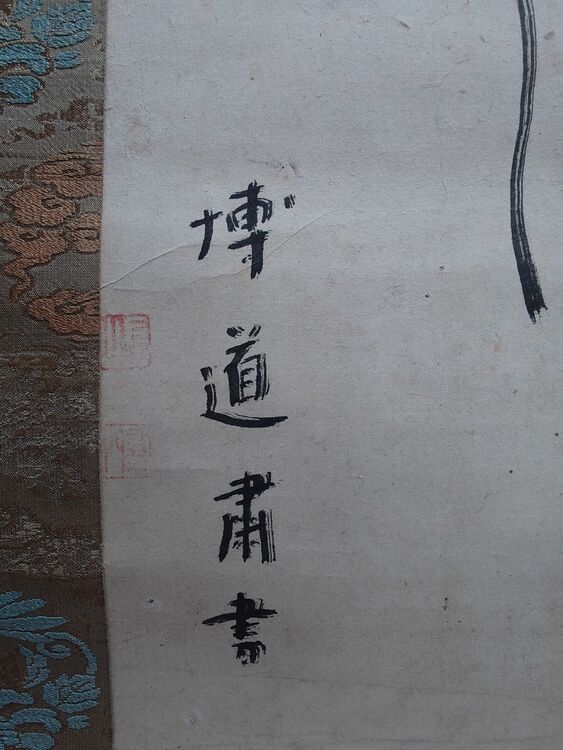 博道肅書